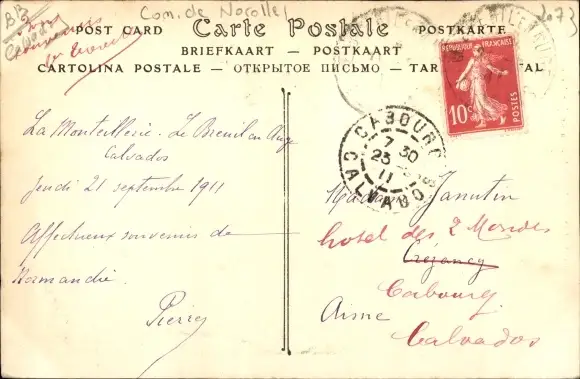 Com. de
2073
POST CARD Carte Postale POSTKARTE
BRIEFKAART - POSTKAART
CARTOLINA POSTALE - ОТКРЫТОЕ ПИСЬМО - TAR AL
RÉPUBLIQUE FRANÇAISE
10c
POSTES
CABOURG
7 30
23
11
CALVADOS
La Monteillerie. Le Breuil en Auge
Calvados
Jeudi 21 septembre 1911
Affectueux souvenirs de
Normandie.
Pierre
Madame Janutin
hotel des 2 Mondes
Crézancy
Cabourg
Aisne
Calvados